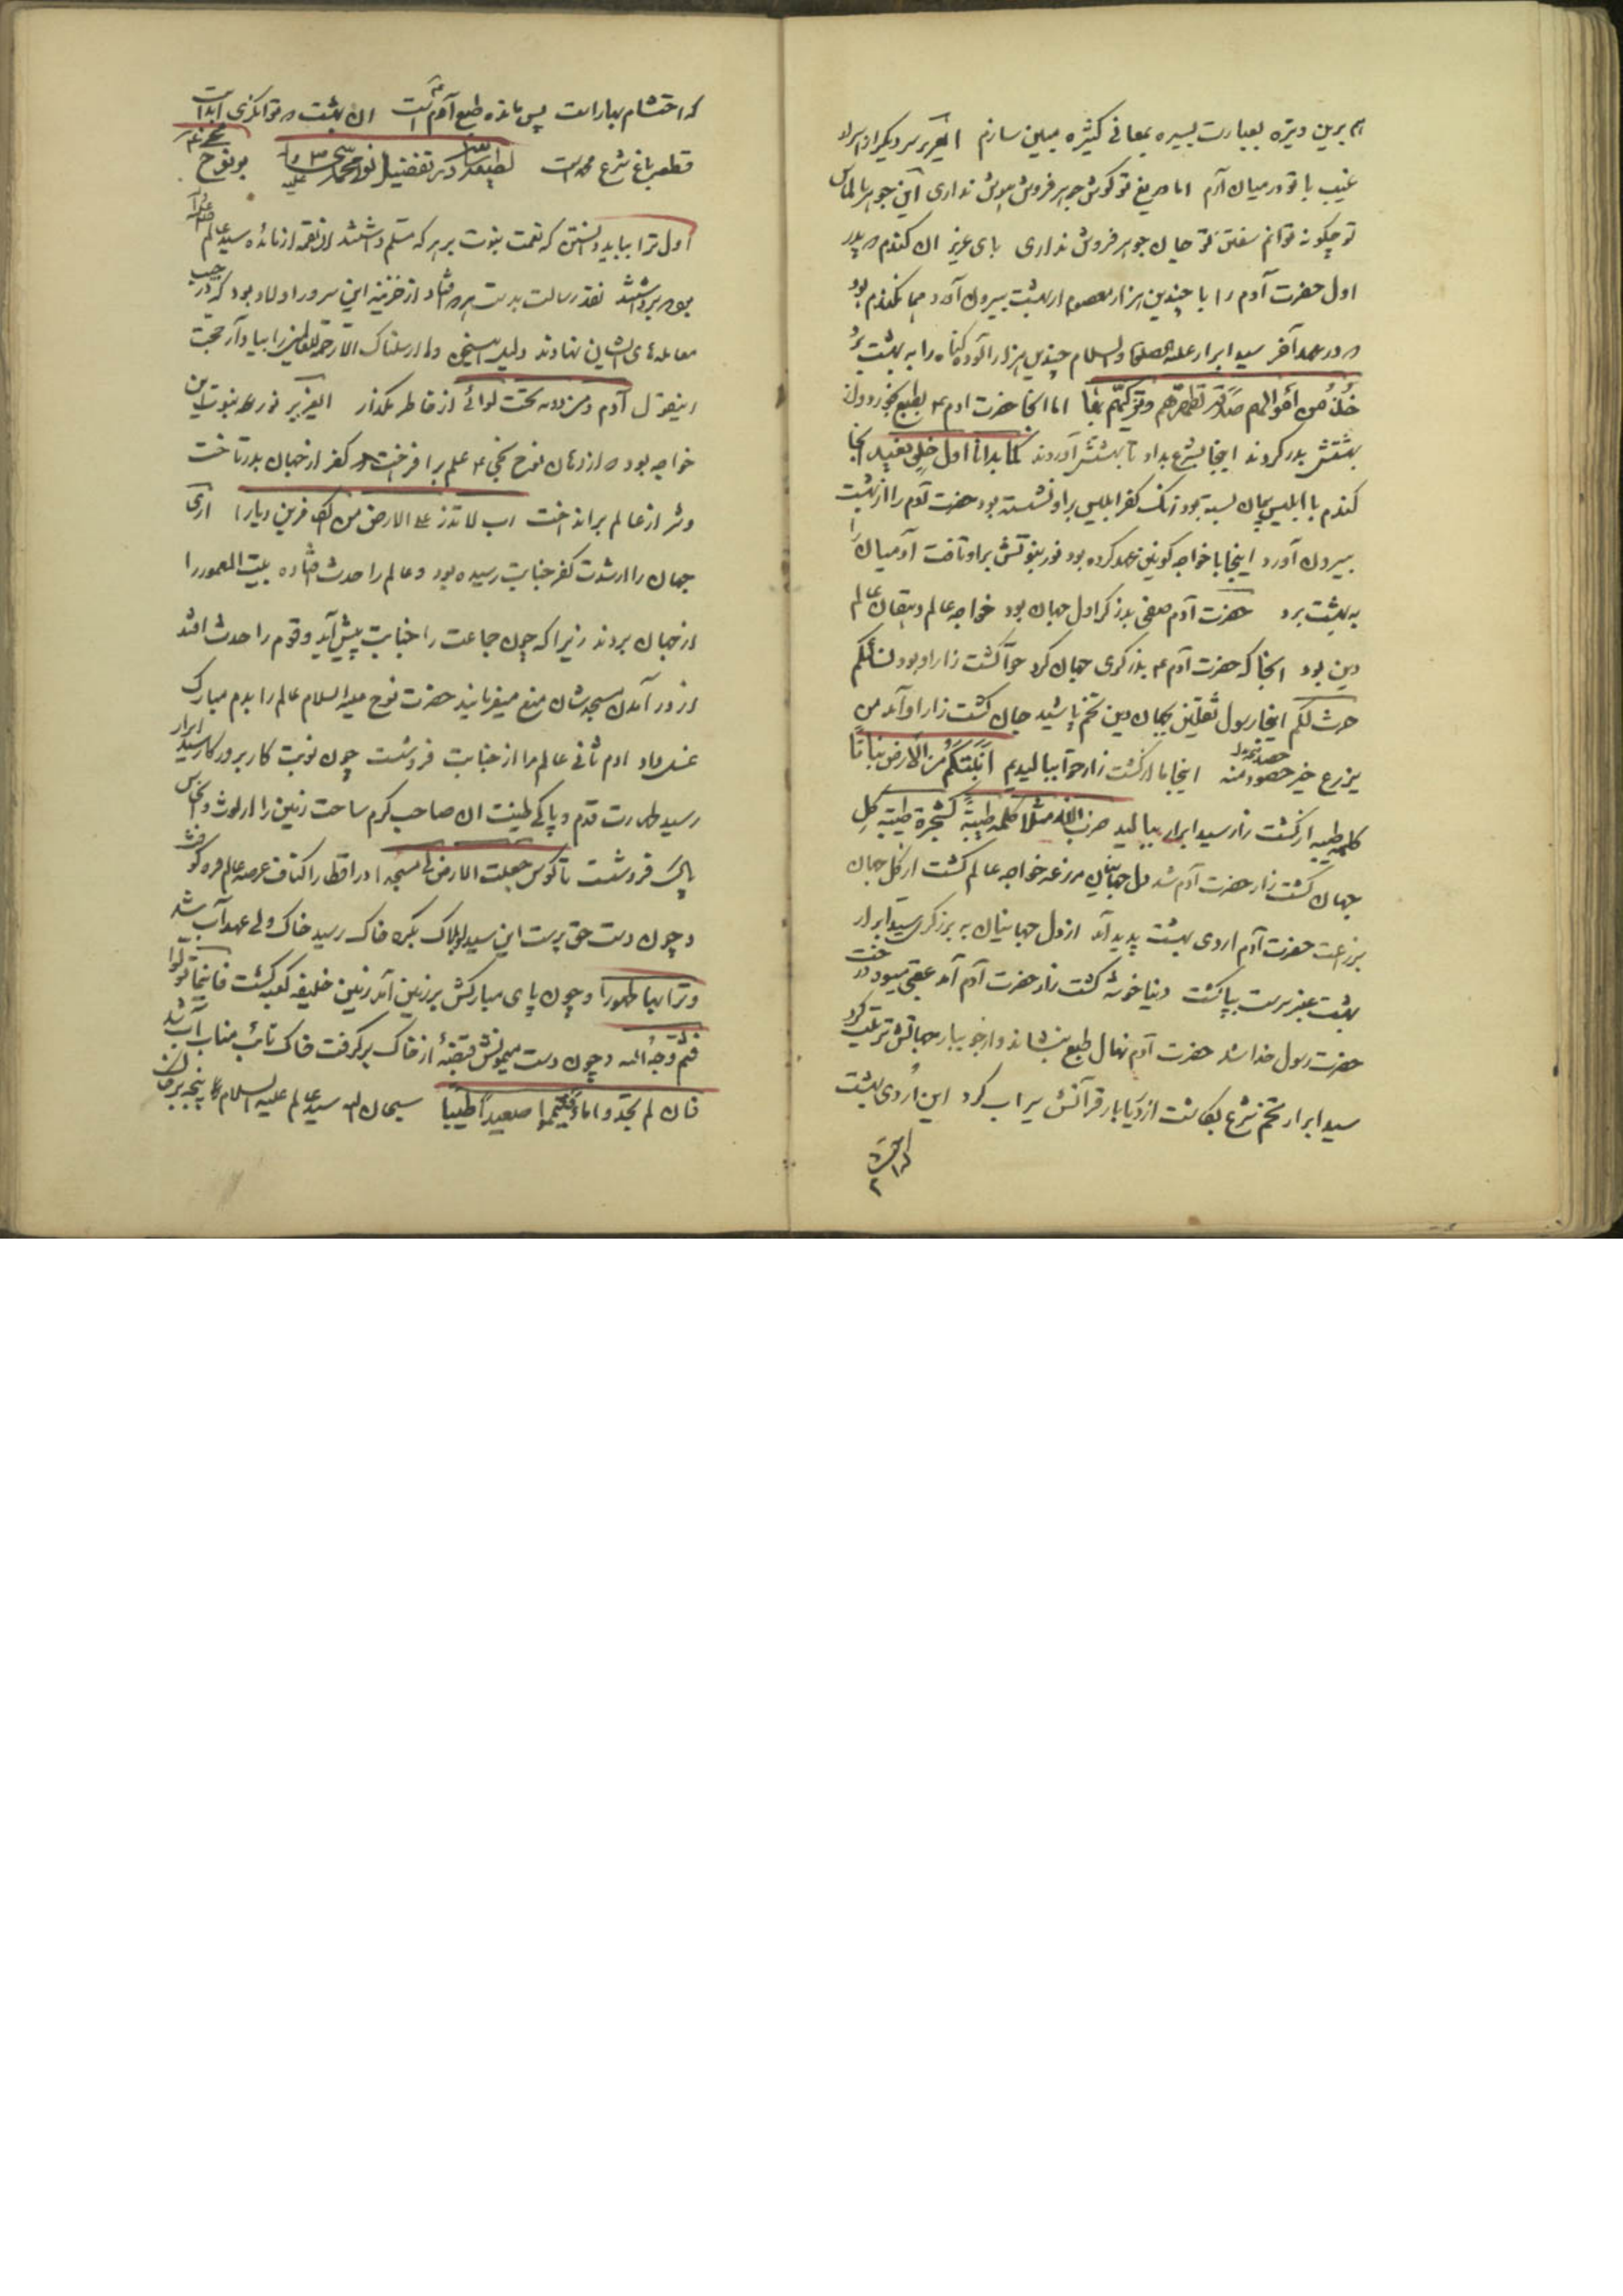 هم برین وتیره بعبارت یسیره بمعانی کثیره مبین سازم ای عزیز سر دیگر از اسرار
غیب با تو در میان آرم اما دریغ تو گوش جوهر فروش هوش نداری این جوهر بالماس
تو چگونه توانم سفتن تو جان جوهر فروش نداری بای عزیز آن گندم که پدر
اول حضرت آدم را با چندین هزار معصوم از بهشت بیرون آورد همان گندم بود
که در عهد آخر سید ابرار علیه الصلوة والسلام چندین هزار آلوده گناه را به بهشت برد
خُذْ من أموالهم صدقة تطهرهم وتزکیهم بها اما آنجا حضرت آدم ع بطبع خورد و از
بهشتش بدر کردند اینجا بشرع بداد تا بهشتش آوردند کما بدأنا اول خلق نعیده آنجا
گندم با ابلیس پیمان بسته بود زنگ کفر ابلیس بر او نشسته بود حضرت آدم را از بهشت
بیرون آورد اینجا با خواجه کونین عهد کرده بود نور نبوتش بر او تافت آدمیان را
به بهشت برد حضرت آدم صفی برزگر اول جهان بود خواجه عالم دهقان عالم
دین بود آنجا که حضرت آدم ع برزگری جهان کرد حوا کشت زار او بود نسائکم
حرث لکم اینجا رسول ثقلین بجهان دین تخم پاشید جان کشت زار او آمد من
یزرع خیر حصد منه اینجا ما از کشت زار حوا ببالیدیم أنبتکم من الأرض نباتا
کلمه طیبه از کشت زار سید ابرار ببالید ضرب الله مثلا کلمة طیبة کشجرة طیبة گل
جهان کشت زار حضرت آدم شد دل جهانیان مزرعه خواجه عالم گشت از گل جهان
بزراعت حضرت آدم اردی بهشت پدید آمد از دل جهانیان به برزگری سید ابرار
بهشت عنبر سرشت بپا گشت دنیا خوشه کشت زار حضرت آدم آمد عقبی میوه درخت
حضرت رسول خدا شد حضرت آدم نهال طبع بنشاند و از جویبار جهانش تربیت کرد
سید ابرار تخم شرع بکاشت از دریابار قرآنش سیراب کرد این اردی بهشت
که احتشام بهار است پس مانده طبع آدم است آن بهشت که توانگری ابد است
قطعه باغ شرع محمد است لطیفه در تفضیل نور محمد بر نوح
اول ترا بباید دانستن که نعمت نبوت بر هر که مسلم داشتند آن لقمه از مائده سید عالم
بود که برداشتند نقد رسالت بدست هر که فتاد از خزینه این سرور اولاد بود که در جیب
معامله های ایشان نهادند دلیل اینسخن وما ارسلناک الا رحمة للعالمین را بیاد آر حجت
اینقول آدم ومن دونه تحت لوائی از خاطر مگذار ای عزیز نور نبوت این
خواجه بود که از زمان نوح نجی ع علم بر افراخت و کفر از جهان بدر تاخت
وشر از عالم برانداخت رب لا تذر علی الارض من الکافرین دیارا آری
جهان را از شدت کفر جنابت رسیده بود و عالم را حدث فتاده بیت المعمور را
از جهان بردند زیرا که چون جماعت را جنابت پیش آید و قوم را حدث افتد
از در آمدن مسجدشان منع میفرمایند حضرت نوح علیه السلام عالم را بدم مبارک
غسل داد آدم ثانی عالم را از جنابت فروشست چون نوبت کار بروزگار سید ابرار
رسید طهارت قدم و پاکی طینت آن صاحب کرم ساحت زمین را از لوث و انجاس
پاک فروشست تا کوس جعلت الارض لی مسجدا در اقطار اکناف عرصه عالم فرو کوفت
و چون دست حق پرست این سید لولاک بکره خاک رسید خاک ولی عهد آب شد
وترابها طهورا و چون پای مبارکش بر زمین آمد زمین خلیفه کعبه گشت فاینما تولوا
فثم وجه الله و چون دست میمونش قبضه از خاک برگرفت خاک نائب مناب آب شد
فان لم تجدوا ماء فتیمموا صعیدا طیبا سبحان الله سید عالم علیه السلام